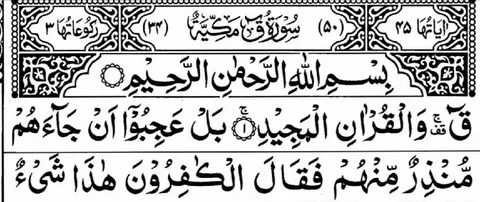 اٰيَاتُهَا ٤٥ (٥٠) سُوْرَةُ قٓ مَكِّيَّةٌ (٣٤) رُكُوْعَاتُهَا ٣
بِسْمِ اللّٰهِ الرَّحْمٰنِ الرَّحِيْمِ
قٓ ۚ۟ وَالْقُرْاٰنِ الْمَجِيْدِ ۚ﴿١﴾ بَلْ عَجِبُوْٓا اَنْ جَآءَهُمْ
مُّنْذِرٌ مِّنْهُمْ فَقَالَ الْكٰفِرُوْنَ هٰذَا شَیْءٌ